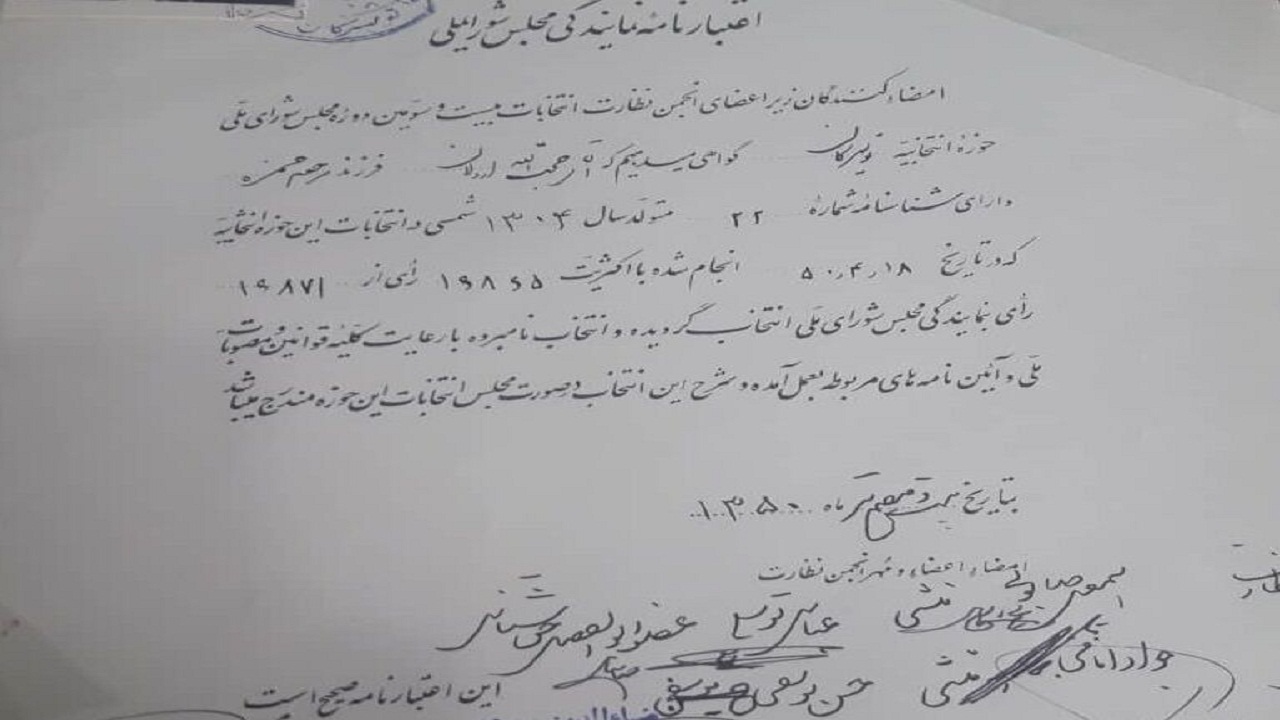 تویسرکان
اعتبارنامه نمایندگی مجلس شورایملی
امضاءکنندگان زیر اعضای انجمن نظارت انتخابات بیست و سومین دوره مجلس شورای ملی
حوزه انتخابیه تویسرکان گواهی میدهیم که آقای رحمت الله اردلان فرزند مرحوم حمزه
دارای شناسنامه شماره ۲۲ متولد سال ۱۳۰۴ شمسی در انتخابات این حوزه انتخابیه
که در تاریخ ۵۰٫۴٫۱۸ انجام شده با اکثریت ۱۹۸۶۵ رأی از ۱۹۸۷۱
رأی بنمایندگی مجلس شورای ملی انتخاب گردیده و انتخاب نامبرده با رعایت کلیه قوانین و مصوبات
ملی و آئین نامه های مربوط بعمل آمده و شرح این انتخاب در صورت مجلس انتخابات این حوزه مندرج میباشد
بتاریخ بیست و تیر ماه ۱۳۵۰
امضاء اعضاء و مهر انجمن نظارت
منشی عباس
جواد منشی حسن یوسفی
این اعتبارنامه صحیح است